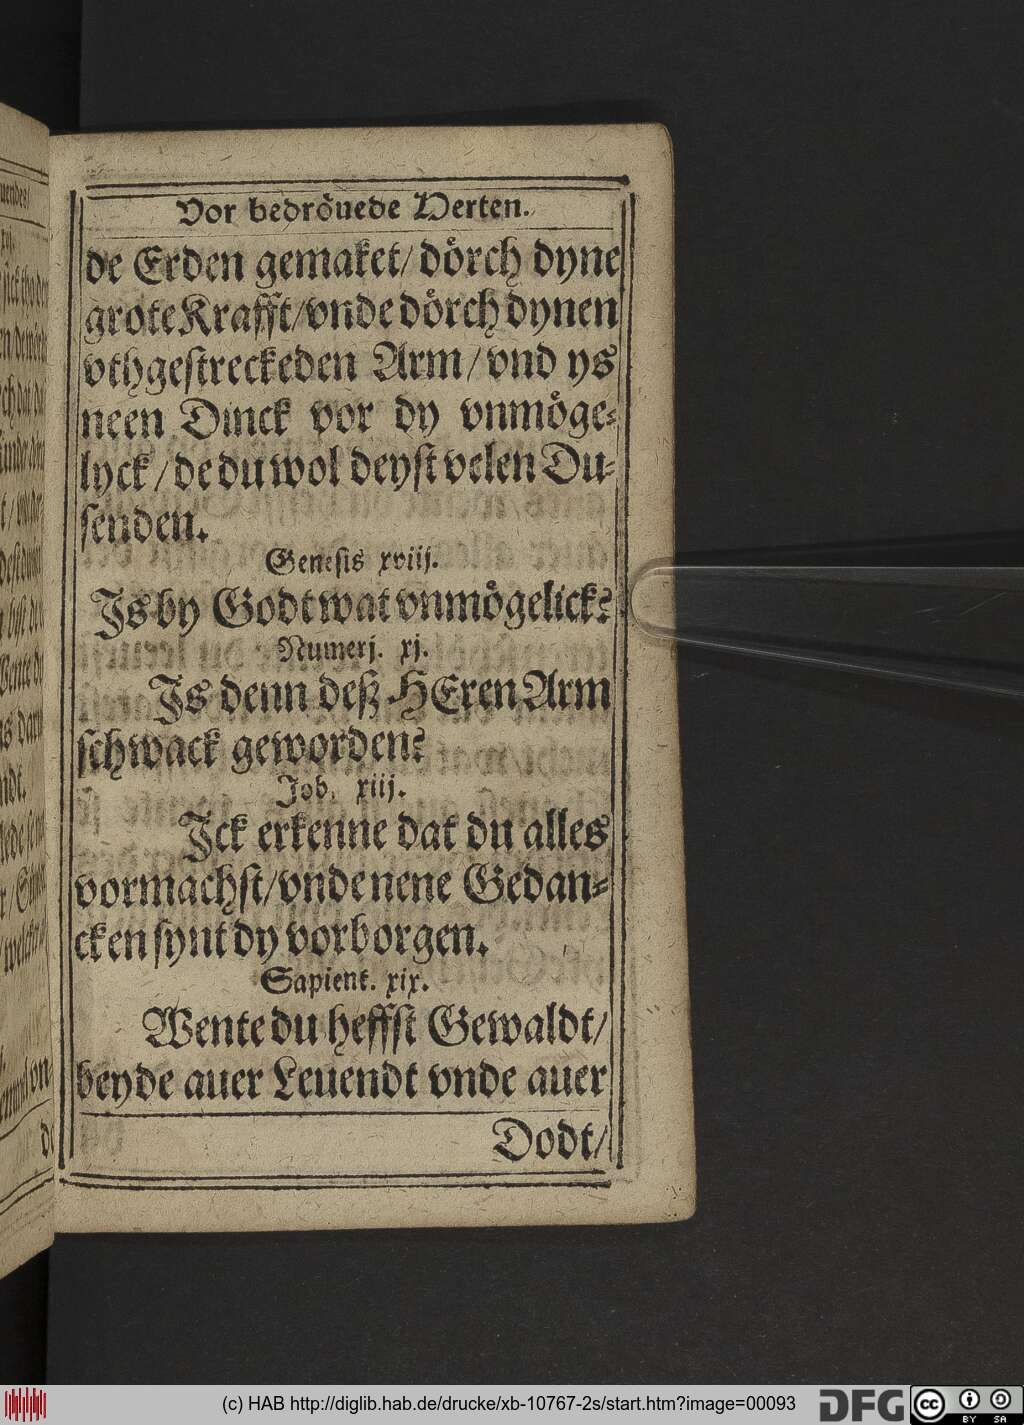 Vor bedröuede Herten.
de Erden gemaket/ dörch dyne
grote Krafft/ vnde dörch dynen
vthgestreckeden Arm/ vnd ys
neen Dinck vor dy vnmöge-
lyck/ de du wol deyst velen Du-
senden.
Genesis xviij.
Js by Godt wat vnmögelick?
Numerj. xj.
Js denn deß HEren Arm
schwack geworden?
Job. xiij.
Jck erkenne dat du alles
vormachst/ vnde nene Gedan-
cken synt dy vorborgen.
Sapient. xix.
Wente du heffst Gewaldt/
beyde auer Leuendt vnde auer
Dodt/
(c) HAB http://diglib.hab.de/drucke/xb-10767-2s/start.htm?image=00093
DFG
cc
BY SA